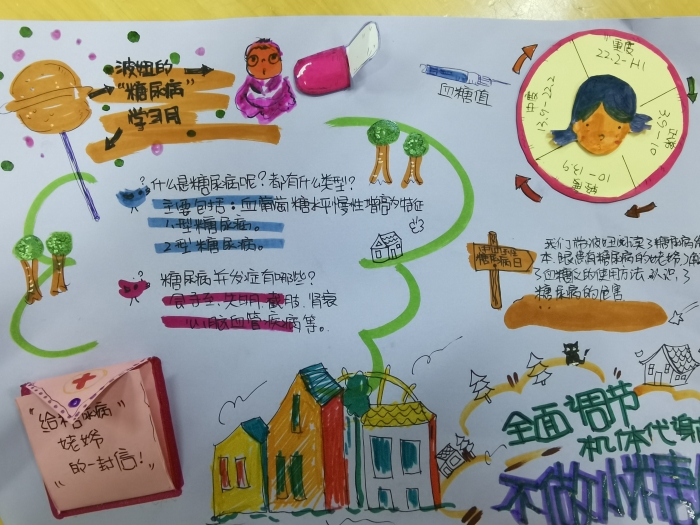 波妞的
"糖尿病"
学习月
血糖值
重度
22.2-HI
中度
13.9-22.2
正常
3.9-10
轻度
10-13.9
什么是糖尿病呢?都有什么类型?
主要包括:血葡萄糖水平慢性增高的特征
1型糖尿病。
2型糖尿病。
糖尿病并发症有哪些?
失明、截肢、肾衰
心脑血管疾病等。
糖尿病日
我们带波妞阅读了糖尿病绘
本
了血糖仪的使用方法,认识了
糖尿病的危害
"给糖尿病
姥爷
的一封信!"
全面调节
机体代谢
不做小糖